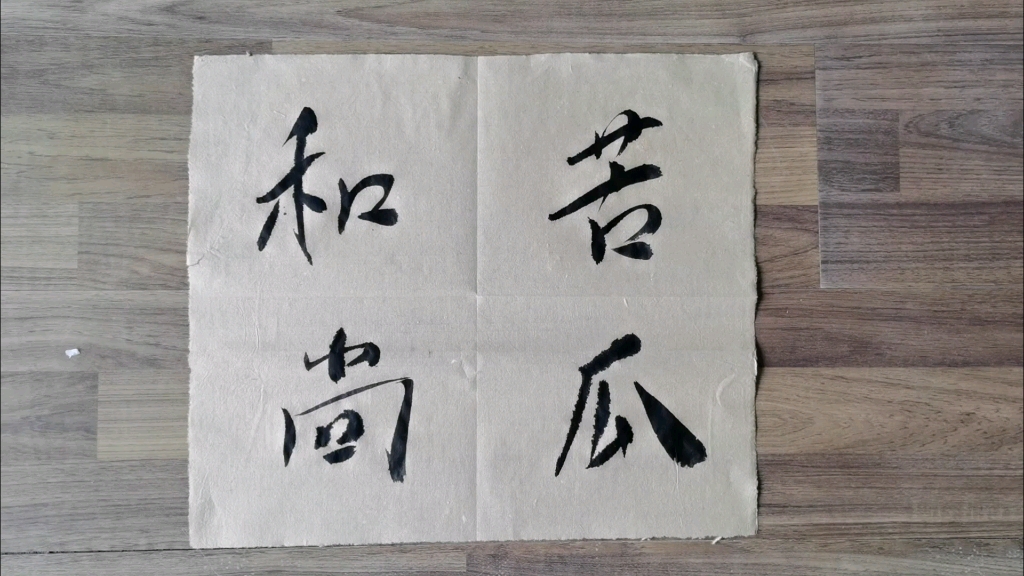 苦瓜
和尚